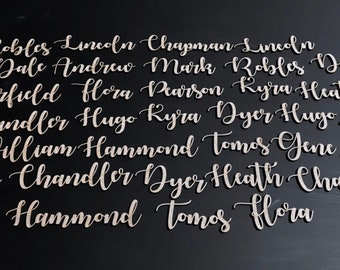 Robles Lincoln Chapman Lincoln
Dale Andrew Mark Robles D
rfield flora Pearson Kyra Heat
ndler Hugo Kyra Dyer Hugo
William Hammond Tomos Gene
Chandler Dyer Heath Cha
Hammond Tomos flora